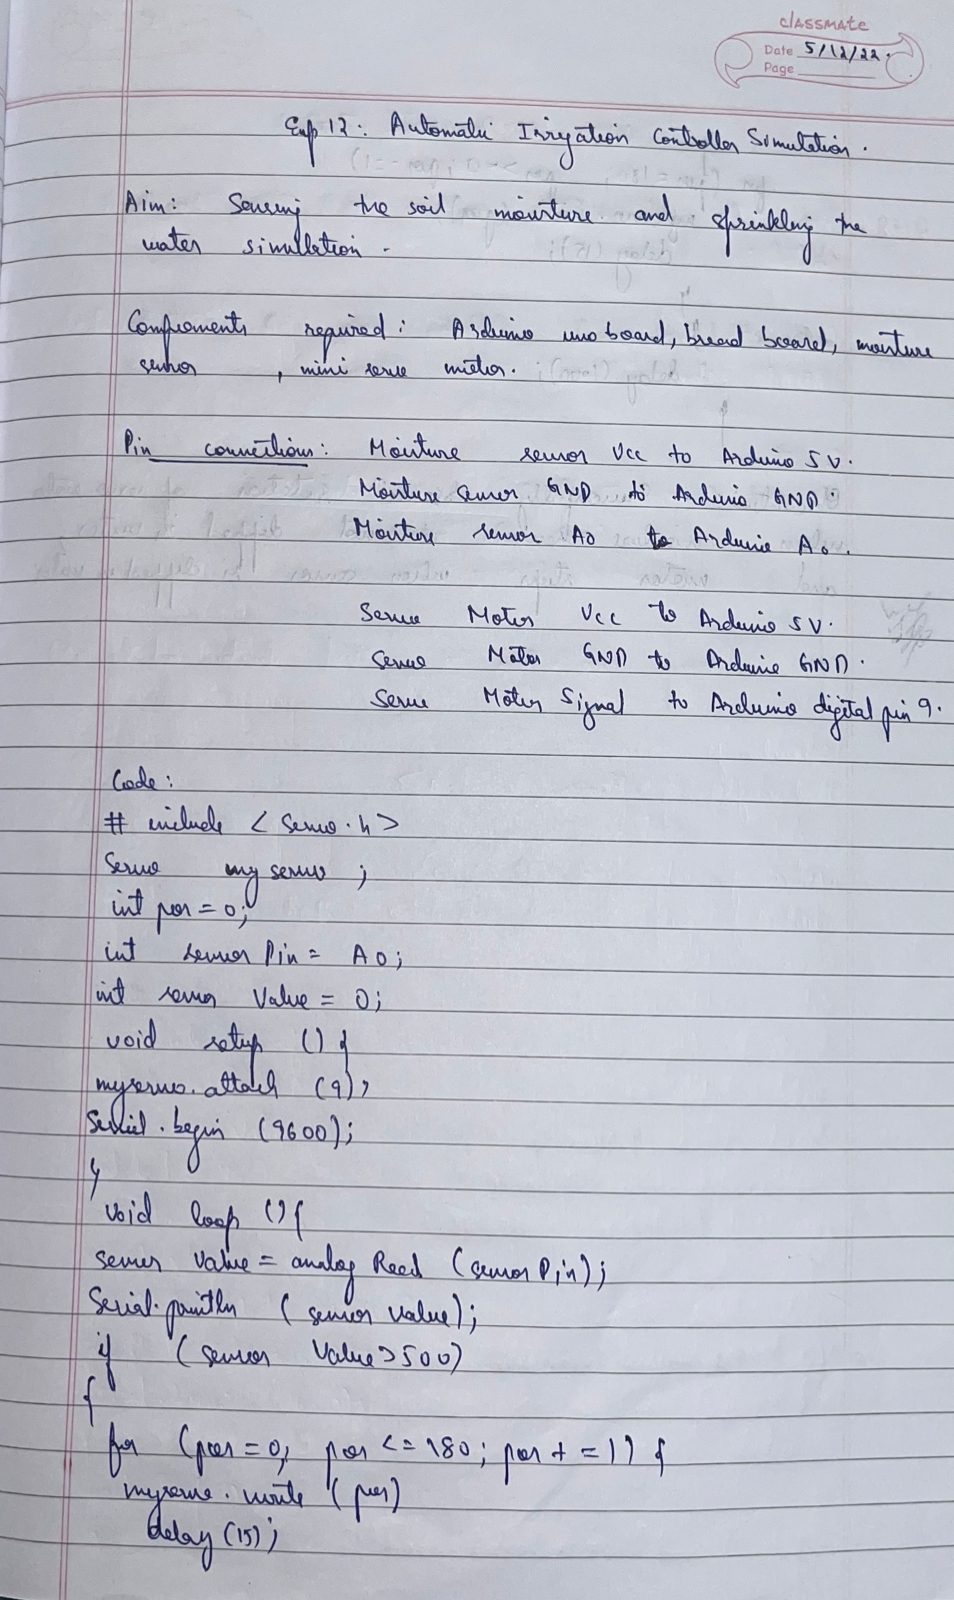 classmate
Date 5/12/22.
Page
Exp 12: Automatic Irrigation Controller Simulation.
Aim: Sensing the soil moisture and sprinkling the
water simullation.
Components required: Arduino uno board, bread board, moisture
sensor , mini servo motor.
Pin connections: Moisture sensor Vcc to Arduino 5V.
Moisture sensor GND to Arduino GND.
Moisture sensor A0 to Arduino A0.
Servo Motor Vcc to Arduino 5V.
Servo Motor GND to Arduino GND.
Servo Motor Signal to Arduino digital pin 9.
Code:
# include < Servo.h>
Servo my servo ;
int pos = 0;
int sensor Pin = A0;
int sensor Value = 0;
void setup () {
myservo.attach (9);
Serial.begin (9600);
}
void loop () {
sensor Value = analog Read (sensor Pin);
Serial.println (sensor value);
if (sensor Value > 500)
{
for (pos = 0; pos <= 180; pos + = 1) {
myservo.write (pos)
delay (15);